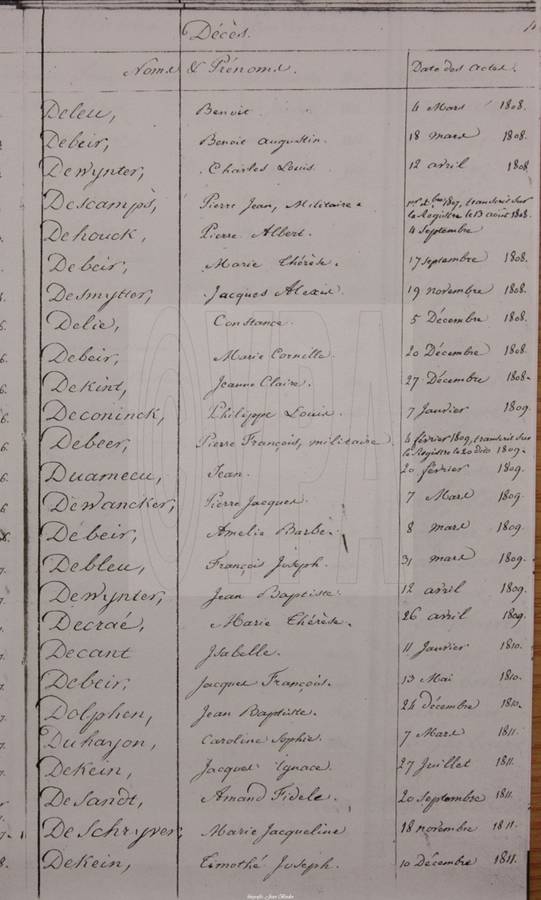 Décès.
Noms & Prénoms. Date des Actes.
Deleu, Benoit 4 Mars 1808.
Debeir, Benoit augustin. 18 mars 1808.
Dewynter, Charles Louis 12 avril 1808
Descamps, Pierre Jean, Militaire. 1807, transcrit sur
le Registre le 13 aout 1808.
Dehouck, Pierre Albert. 4 Septembre
Debeir, Marie Thérèse. 17 septembre 1808.
Desmytter, Jacques Alexis. 19 novembre 1808.
Delie, Constance. 5 Décembre 1808.
Debeir, Marie Cornille 20 Décembre 1808.
Dekint, Jeanne Claire. 27 Décembre 1808.
Deconinck, Philippe Louis. 7 Janvier 1809.
Debeer, Pierre François, militaire 4 février 1809, transcrit sur
le Registre le 20 1809.
Duamecu, Jean. 20 février 1809.
Dewancker, Pierre Jacques 7 Mars 1809.
Debeir, Amelie Barbe. 8 mars 1809.
Debleu, François Joseph. 31 mars 1809.
Dewynter, Jean Baptiste. 12 avril 1809.
Decraé, Marie Thérèse. 26 avril 1809.
Decant Isabelle. 11 Janvier 1810.
Debeir, Jacques François. 13 Mai 1810.
Dolphen, Jean Baptiste. 24 décembre 1810.
Duhayon, Caroline Sophie. 7 Mars 1811.
Dekein, Jacques ignace. 27 Juillet 1811.
Desandt, Amand Fidele. 20 Septembre 1811.
Deschryver, Marie Jacqueline 18 novembre 1811.
Dekein, Timothé Joseph. 10 Décembre 1811.